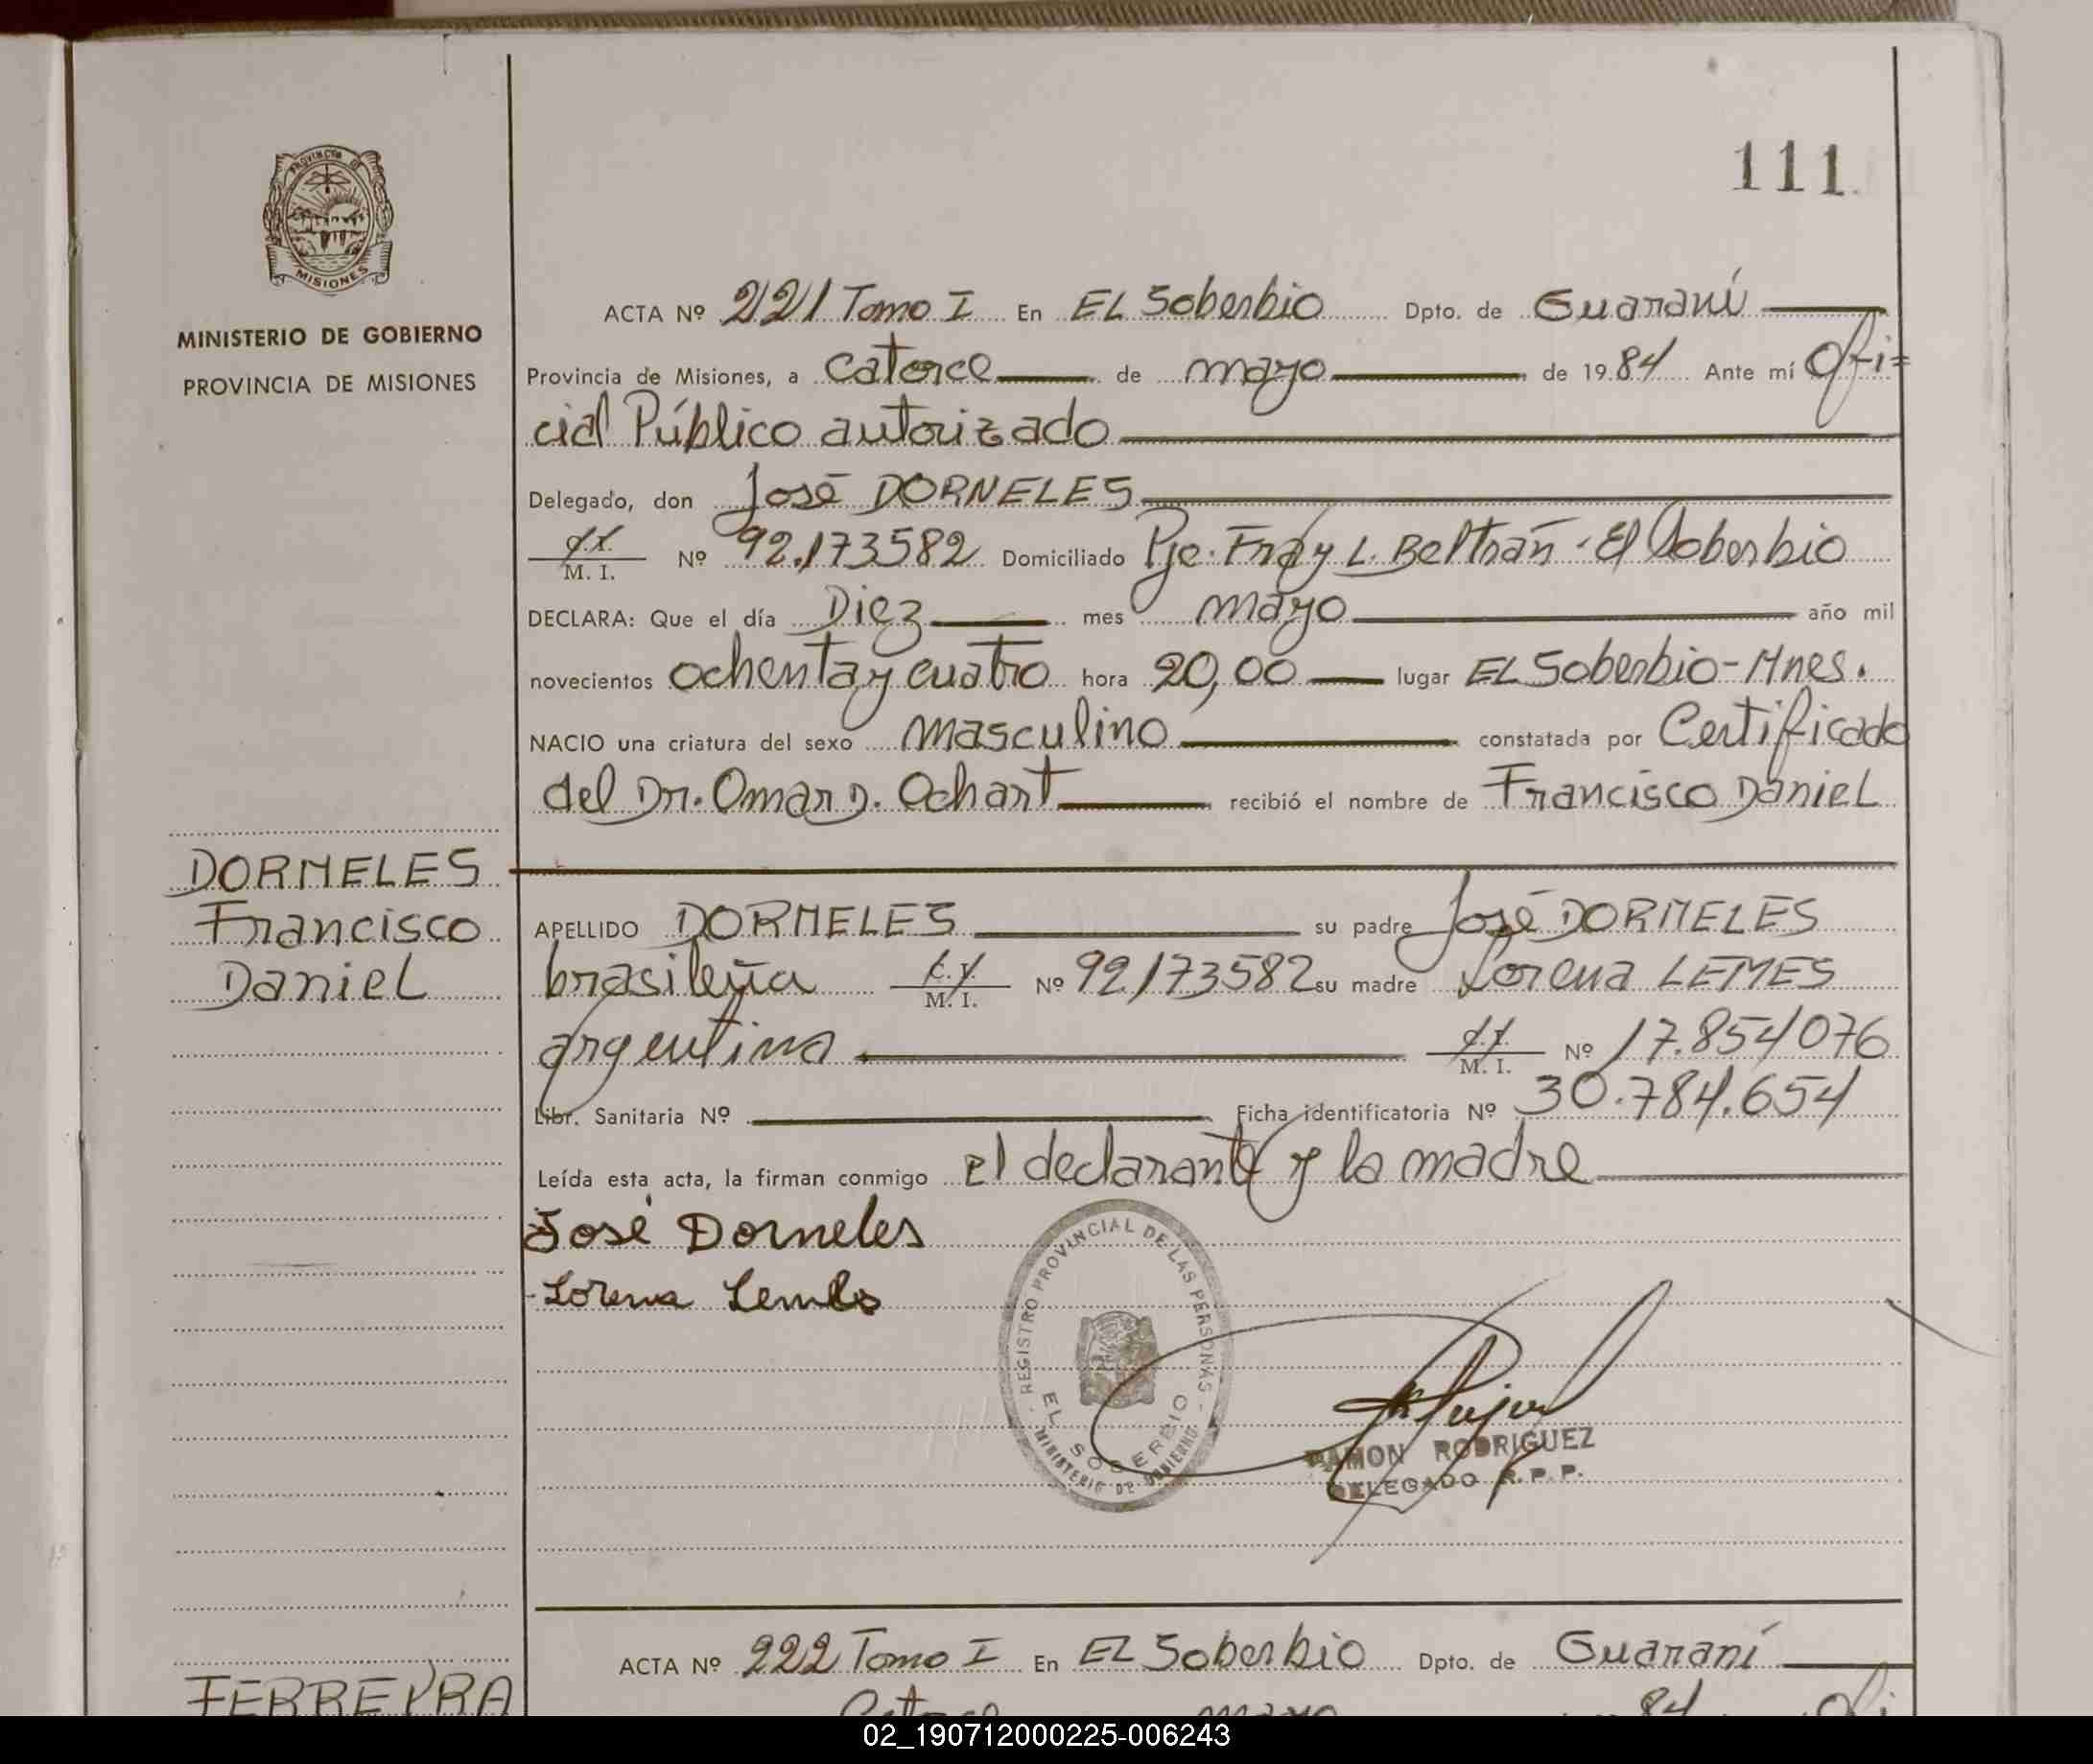 111
PROVINCIA DE
MISIONES
MINISTERIO DE GOBIERNO
PROVINCIA DE MISIONES
ACTA Nº 221 Tomo I En EL Soberbio Dpto. de Guaraní
Provincia de Misiones, a catorce de mayo de 1984 Ante mí Ofi=
cial Público autorizado
Delegado, don José DORNELES
C.I. M. I. Nº 92.173582 Domiciliado Pje. Fray L. Beltrán - El Soberbio
DECLARA: Que el día Diez mes mayo año mil
novecientos ochenta y cuatro hora 20,00 lugar EL Soberbio-Mnes.
NACIO una criatura del sexo masculino constatada por Certificado
del Dr. Omar D. Ochart recibió el nombre de Francisco Daniel
DORNELES
Francisco
Daniel
APELLIDO DORNELES su padre José DORNELES
brasileña C.I. M. I. Nº 92.173582 su madre Lorena LEMES
argentina C.I. M. I. Nº 17.854076
Libr. Sanitaria Nº Ficha identificatoria Nº 30.784.654
Leída esta acta, la firman conmigo el declarante y la madre
José Dorneles
Lorena Lemes
REGISTRO PROVINCIAL DE LAS PERSONAS
EL SOBERBIO
MINISTERIO DE GOBIERNO
RAMON RODRIGUEZ
DELEGADO R. P. P.
ACTA Nº 222 Tomo I En EL Soberbio Dpto. de Guaraní
FERREYRA
Catorce mayo 84 Ofi
02_190712000225-006243